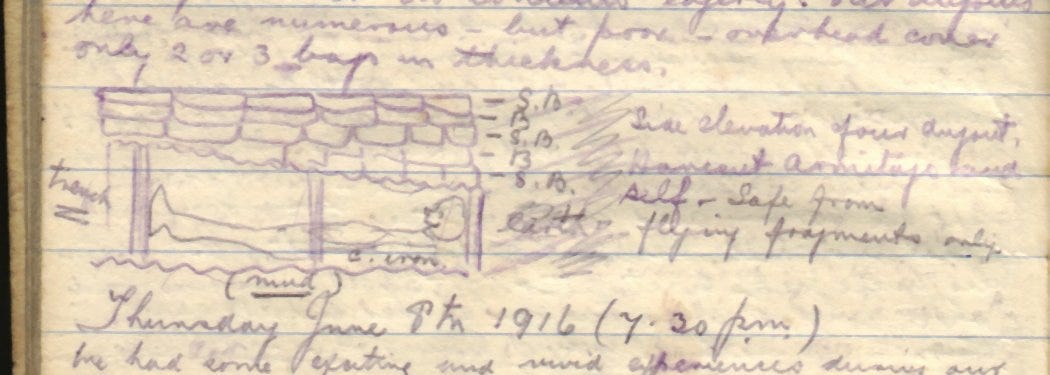 here are numerous - but poor - overhead cover
only 2 or 3 bags in thickness.
- S.B.
- B
- S.B.
- B
- S.B.
trench
earth
c. iron.
(mud)
Side elevation of our dugout,
Harcourt Armitage and
self - Safe from
flying fragments only.
Thursday June 8th 1916 (7.30 p.m.)
We had some exciting and vivid experiences during our